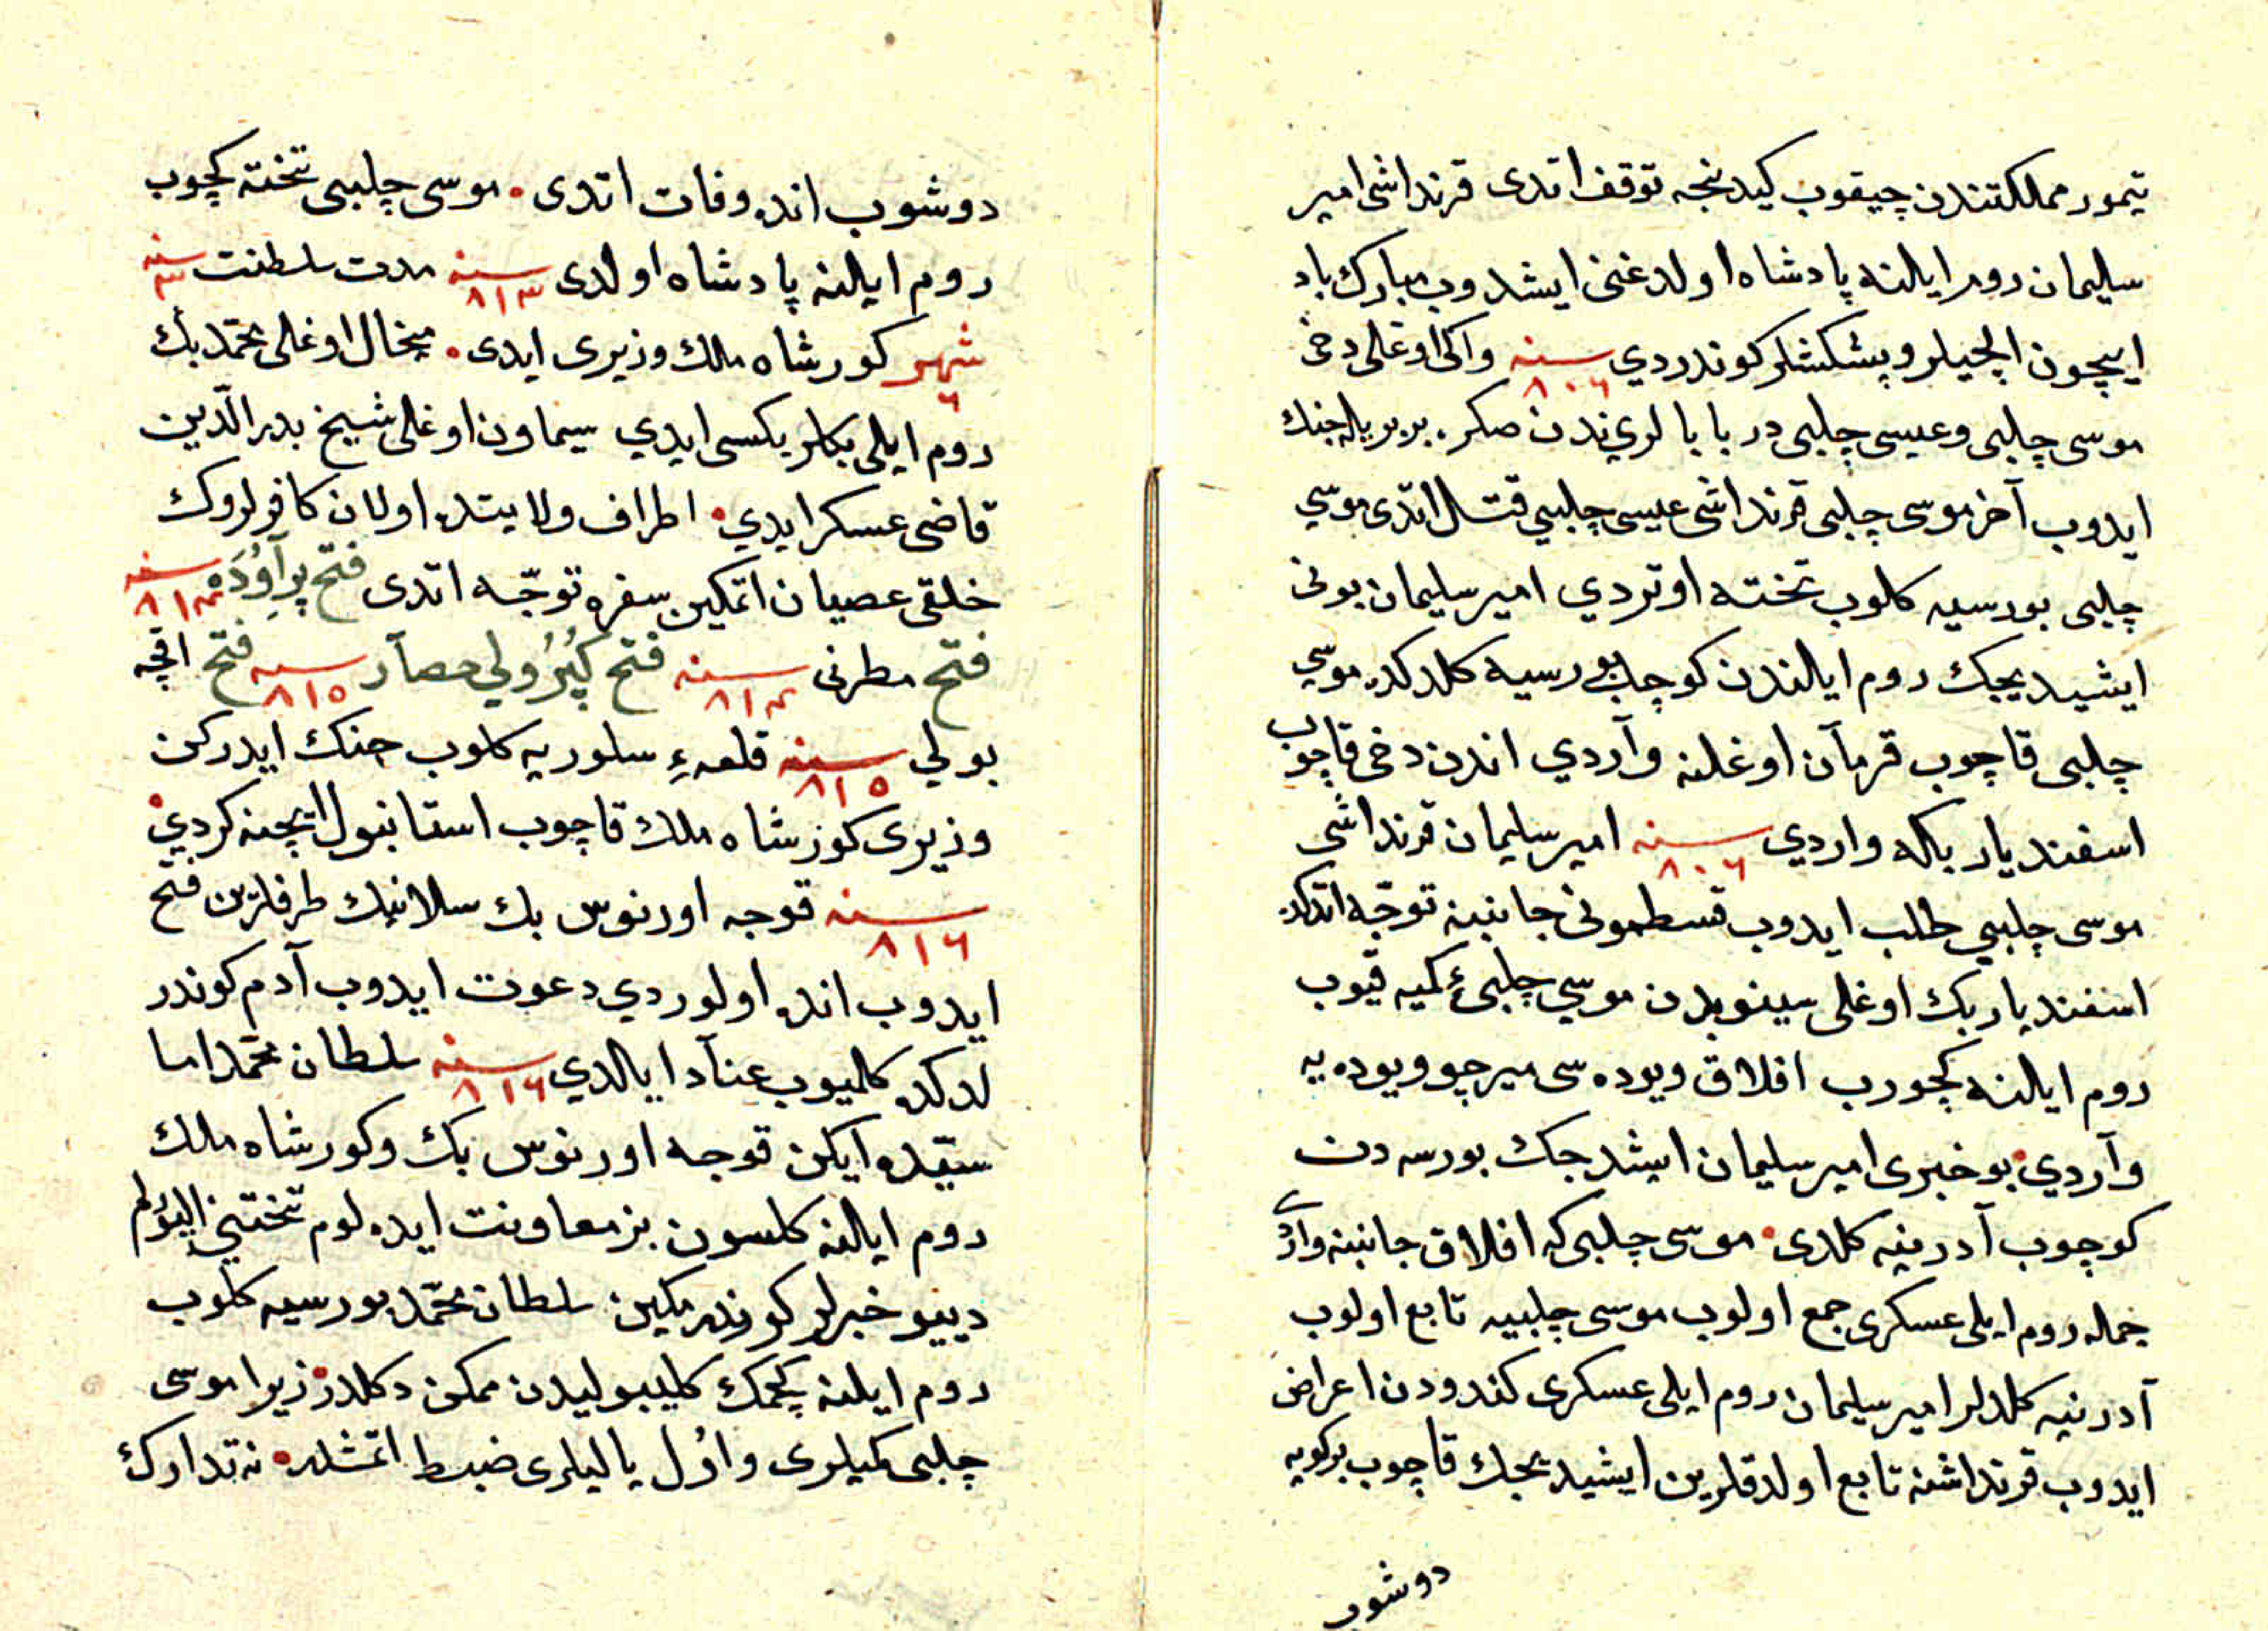 تیمور مملكتندن چیقوب كیدنجه توقف اتدی قرنداشی امیر
سلیمان روم ایلنه پادشاه اولدغنی ایشدوب مبارك باد
ایچون ایلچیلر و پیشكشلر كوندردي سنه ٨٠٦ واكی اوغلی دخی
موسی چلبی وعیسی چلبی در بابا لرندن صكره بر بریله جنك
ایدوب آخر موسی چلبی قرنداشی عیسی چلبیي قتل اتدی موسي
چلبی بورسیه كلوب تخته اوتردي امیر سلیمان بونی
ایشیدیجك روم ایلندن كوچب بورسیه كلدكده موسي
چلبی قاچوب قرمآن اوغلنه وآردي اندن دخی قاچوب
اسفندیار بكه واردي سنه ٨٠٦ امیر سلیمان قرنداشی
موسی چلبیي طلب ایدوب قسطمونی جانبنه توجّه اتدكده
اسفندیار بك اوغلی سینوبدن موسي چلبیئ كمیه قیوب
روم ایلنه كچورب افلاق ویوده سی میرچو ویوده یه
وآردي بو خبری امیر سلیمان ایشدجك بورسه دن
كوچوب آدرنیه كلدی موسی چلبی كه افلاق جانبنه واردی
جمله روم ایلی عسكری جمع اولوب موسی چلبییه تابع اولوب
آدرنیه كلدلر امیر سلیمان روم ایلی عسكری كندودن اعراض
ایدوب قرنداشنه تابع اولدقلرین ایشیدیجك قاچوب بر كویه
دوشوب
دوشوب انده وفات اتدی موسی چلبی تخته كچوب
روم ایلنه پادشاه اولدی سنه ٨١٣ مدت سلطنت سنه ٣
شهر ٦ كور شاه ملك وزیری ایدی میخال اوغلی محمّد بك
روم ایلی بكلر بكسی ایدي سیماون اوغلی شیخ بدر الدّین
قاضی عسكر ایدي اطراف ولایتده اولان كافرلروك
خلقی عصیان اتمكین سفره توجّه اتدی فتح پرآوُدَه سنه ٨١٤
فتح مطرنی سنه ٨١٤ فتح كُپرُولي حصآر سنه ٨١٥ فتح اقچه
بولي سنه ٨١٥ قلعهٔ سلوریه كلوب جنك ایدركن
وزیری كور شاه ملك قاچوب استانبول ایچنه كردي
سنه ٨١٦ قوجه اورنوس بك سلانیك طرفلرین فتح
ایدوب انده اولوردي دعوت ایدوب آدم كوندر
لدكده كلمیوب عنآد ایلدي سنه ٨١٦ سلطان محمّد اما
سیّده ایكن قوجه اورنوس بك وكور شاه ملك
روم ایلنه كلسون بز معاونت ایده لوم تختنی الیویرلم
دییو خبرلر كوندرمكین سلطان محمّد بورسیه كلوب
روم ایلنه كچمك كلیبولیدن ممكن دكلدر زیرا موسی
چلبی كمیلری و اوُل یالیلری ضبط اتمشدر نه تدارك